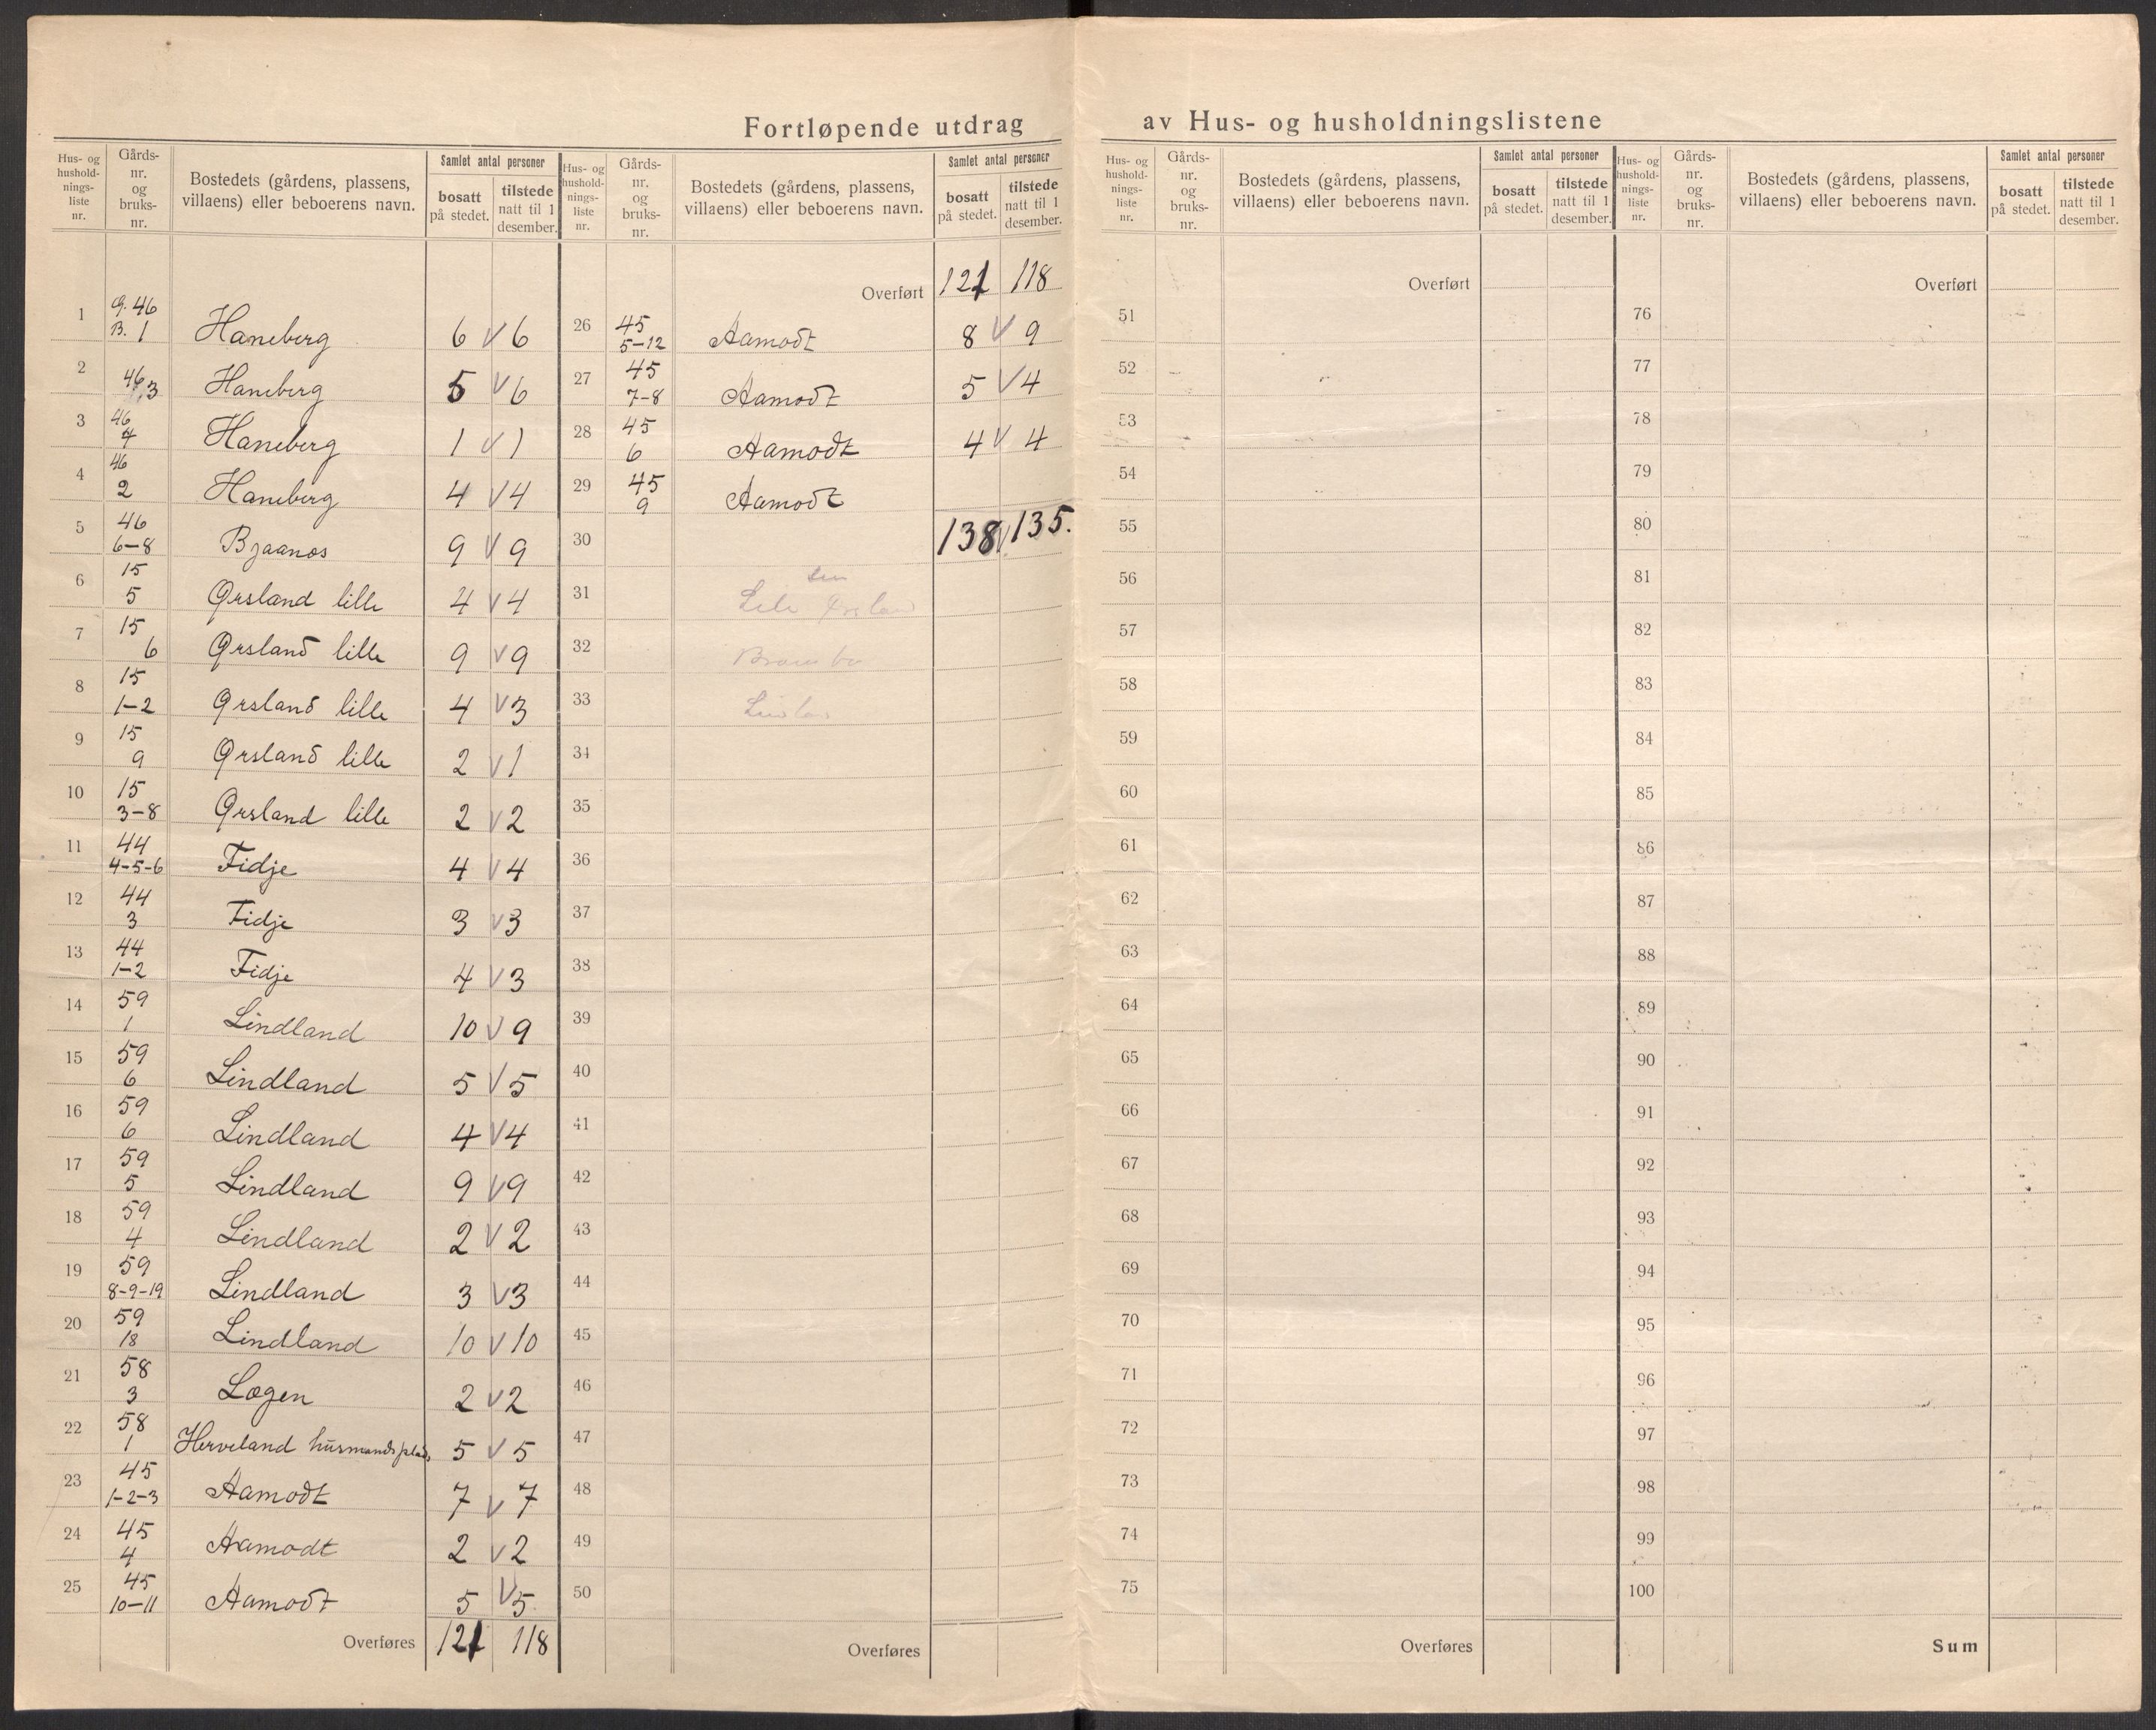 Fortløpende utdrag av Hus- og husholdningslistene
Hus- og husholdnings-liste nr. Gårds-nr. og bruks-nr. Bostedets (gårdens, plassens, villaens) eller beboerens navn. Samlet antal personer bosatt på stedet. tilstede natt til 1 desember.
1 G. 46 B. 1 Haneberg 6 V 6
2 46,3 Haneberg 5 V 6
3 46 4 Haneberg 1 V 1
4 46 2 Haneberg 4 V 4
5 46 6-8 Bjaanes 9 V 9
6 15 5 Ørsland lille 4 V 4
7 15 6 Ørsland lille 9 V 9
8 15 1-2 Ørsland lille 4 V 3
9 15 9 Ørsland lille 2 V 1
10 15 3-8 Ørsland lille 2 V 2
11 44 4-5-6 Fidje 4 V 4
12 44 3 Fidje 3 V 3
13 44 1-2 Fidje 4 V 3
14 59 1 Lindland 10 V 9
15 59 6 Lindland 5 V 5
16 59 6 Lindland 4 V 4
17 59 5 Lindland 9 V 9
18 59 4 Lindland 2 V 2
19 59 8-9-19 Lindland 3 V 3
20 59 18 Lindland 10 V 10
21 58 3 Logen 2 V 2
22 58 1 Herveland husmandsplads 5 V 5
23 45 1-2-3 Aamodt 7 V 7
24 45 4 Aamodt 2 V 2
25 45 10-11 Aamodt 5 V 5
Overføres 121 118
Hus- og husholdnings-liste nr. Gårds-nr. og bruks-nr. Bostedets (gårdens, plassens, villaens) eller beboerens navn. Samlet antal personer bosatt på stedet. tilstede natt til 1 desember.
Overført 121 118
26 45 5-12 Aamodt 8 V 9
27 45 7-8 Aamodt 5 V 4
28 45 6 Aamodt 4 V 4
29 45 9 Aamodt
30 138 V 135.
31
32
33
34
35
36
37
38
39
40
41
42
43
44
45
46
47
48
49
50
Overføres
Hus- og husholdnings-liste nr. Gårds-nr. og bruks-nr. Bostedets (gårdens, plassens, villaens) eller beboerens navn. Samlet antal personer bosatt på stedet. tilstede natt til 1 desember.
Overført
51
52
53
54
55
56
57
58
59
60
61
62
63
64
65
66
67
68
69
70
71
72
73
74
75
Overføres
Hus- og husholdnings-liste nr. Gårds-nr. og bruks-nr. Bostedets (gårdens, plassens, villaens) eller beboerens navn. Samlet antal personer bosatt på stedet. tilstede natt til 1 desember.
Overført
76
77
78
79
80
81
82
83
84
85
86
87
88
89
90
91
92
93
94
95
96
97
98
99
100
Sum